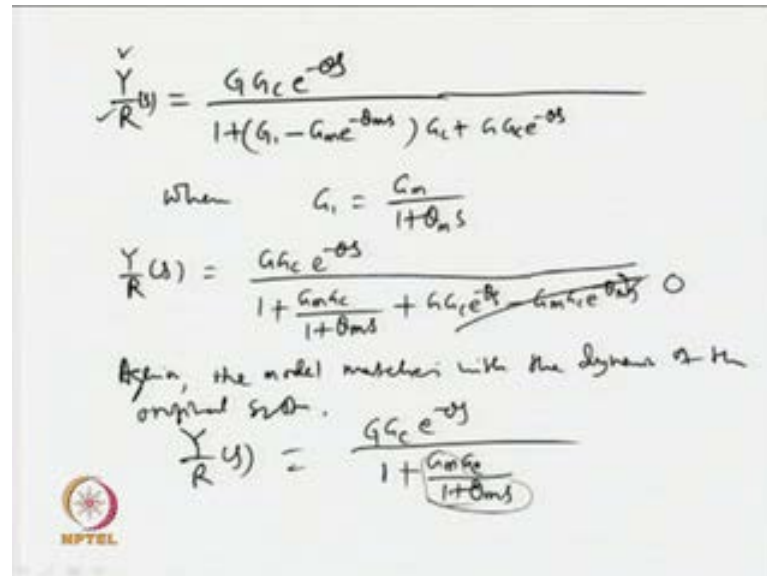 Y/R (s) = G Gc e^-θs / 1 + (G1 - Gm e^-θms) Gc + G Gc e^-θs
when G1 = Gm / 1 + θm s
Y/R (s) = G Gc e^-θs / 1 + Gm Gc / 1 + θm s + G Gc e^-θs - Gm Gc e^-θms 0
Again, the model matches with the dynamics of the
original
Y/R (s) = G Gc e^-θs / 1 + Gm Gc / 1 + θm s
NPTEL